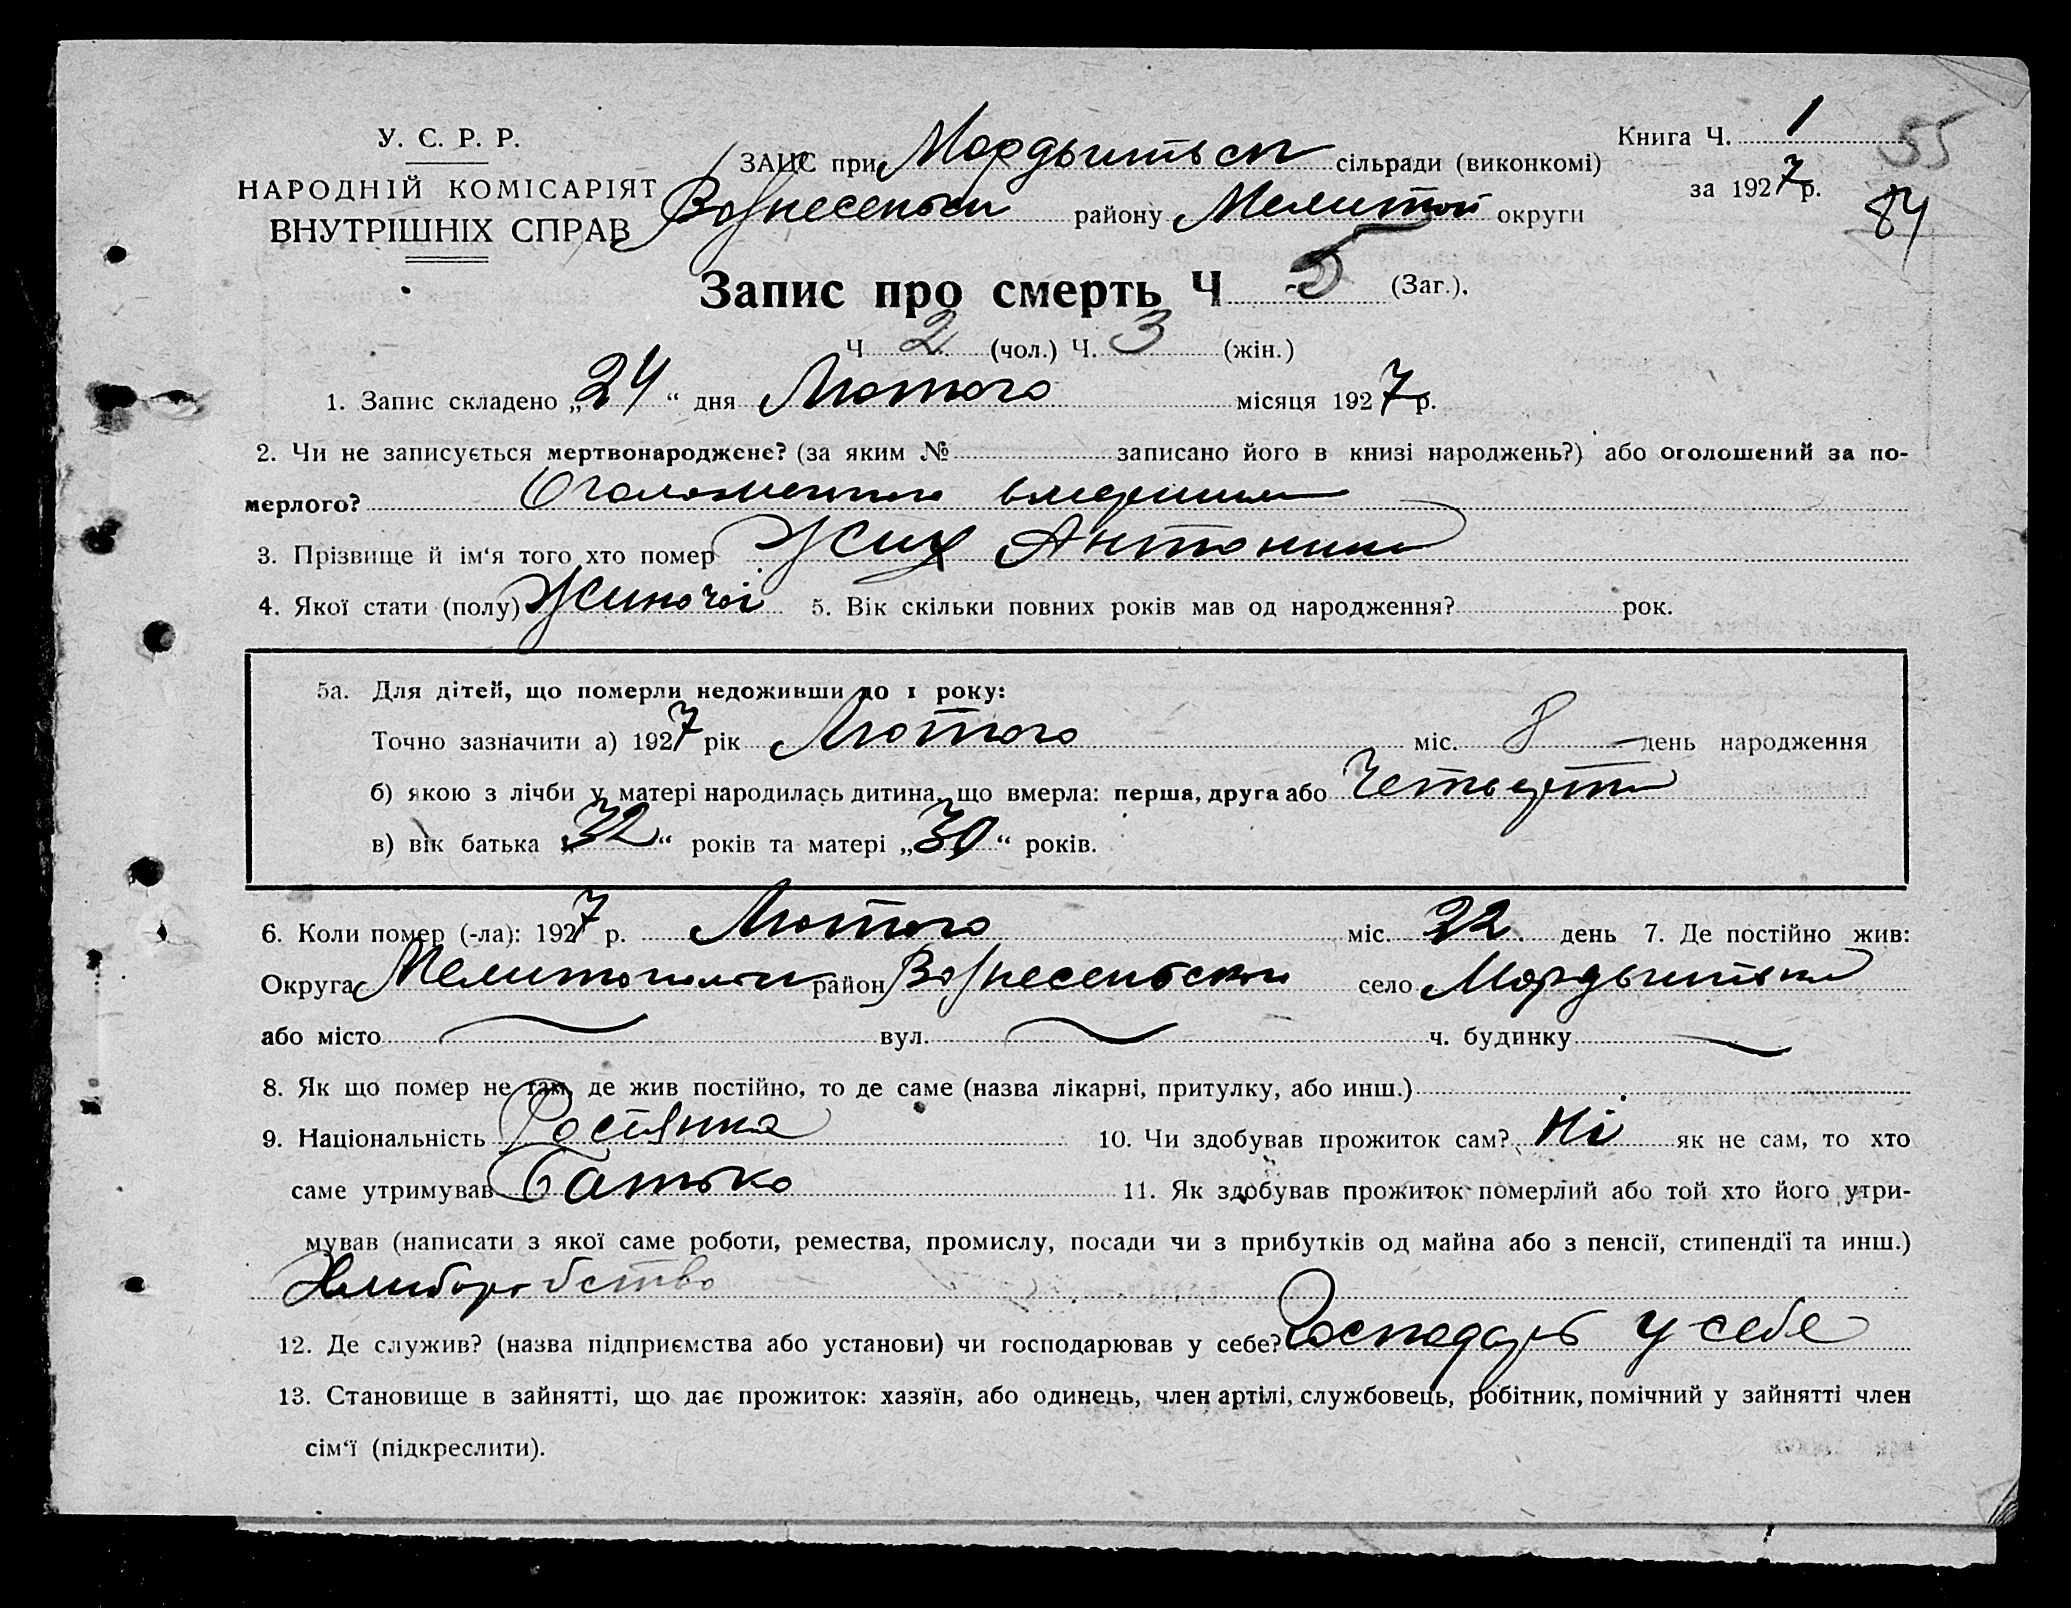 У. С. Р. Р.
НАРОДНІЙ КОМІСАРІЯТ
ВНУТРІШНІХ СПРАВ
Книга Ч. 1
55
за 1927 р.
84
ЗАЦС при сільради (виконкомі)
району округи
Запис про смерть Ч 5 (Заг.).
Ч 2 (чол.) Ч. 3 (жін.)
1. Запис складено „24“ дня Лютого місяця 1927 р.
2. Чи не записується мертвонароджене? (за яким № записано його в книзі народжень?) або оголошений за по-
мерлого?
3. Прізвище й ім‘я того хто помер Жих Антонина
4. Якої стати (полу) Жиночоі 5. Вік скільки повних років мав од народження? рок.
5а. Для дітей, що померли недоживши до 1 року:
Точно зазначити а) 1927 рік Лютого міс. 8 день народження
б) якою з лічби у матері народилась дитина, що вмерла: перша, друга або
в) вік батька „32“ років та матері „30“ років.
6. Коли помер (-ла): 1927 р. Лютого міс. 22 день 7. Де постійно жив:
Округа район село
або місто вул. ч. будинку
8. Як що помер не там, де жив постійно, то де саме (назва лікарні, притулку, або инш.)
9. Національність 10. Чи здобував прожиток сам? Ні як не сам, то хто
саме утримував Батько 11. Як здобував прожиток померлий або той хто його утри-
мував (написати з якої саме роботи, ремества, промислу, посади чи з прибутків од майна або з пенсії, стипендії та инш.)
Хлиборобство
12. Де служив? (назва підприємства або установи) чи господарював у себе? Господарь у себе
13. Становище в зайнятті, що дає прожиток: хазяїн, або одинець, член артілі, службовець, робітник, помічний у зайнятті член
сім‘ї (підкреслити).